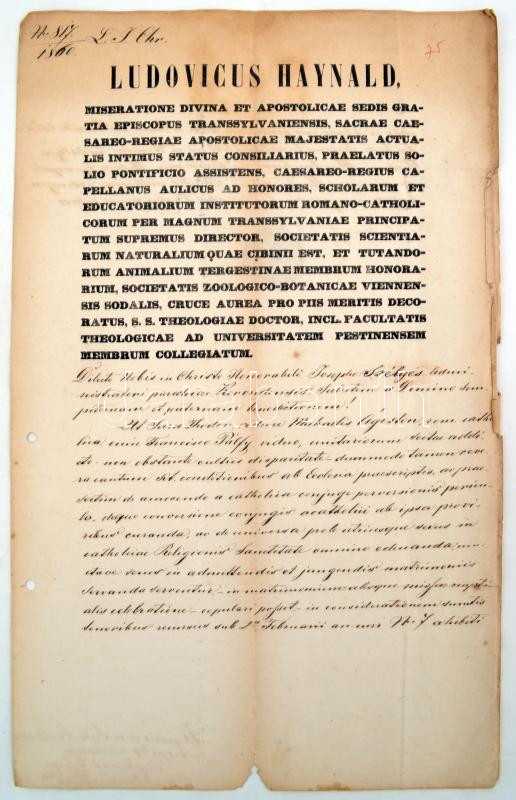 Nr. 817. L. J. Chr.
1860.
75
LUDOVICUS HAYNALD,
MISERATIONE DIVINA ET APOSTOLICAE SEDIS GRA-
TIA EPISCOPUS TRANSSYLVANIENSIS, SACRAE CAE-
SAREO-REGIAE APOSTOLICAE MAJESTATIS ACTUA-
LIS INTIMUS STATUS CONSILIARIUS, PRAELATUS SO-
LIO PONTIFICIO ASSISTENS, CAESAREO-REGIUS CA-
PELLANUS AULICUS AD HONORES, SCHOLARUM ET
EDUCATORIORUM INSTITUTORUM ROMANO-CATHOLI-
CORUM PER MAGNUM TRANSSYLVANIAE PRINCIPA-
TUM SUPREMUS DIRECTOR, SOCIETATIS SCIENTIA-
RUM NATURALIUM QUAE CIBINII EST, ET TUTANDO-
RUM ANIMALIUM TERGESTINAE MEMBRUM HONORA-
RIUM, SOCIETATIS ZOOLOGICO-BOTANICAE VIENNEN-
SIS SODALIS, CRUCE AUREA PRO PIIS MERITIS DECO-
RATUS, S. S. THEOLOGIAE DOCTOR, INCL. FACULTATIS
THEOLOGICAE AD UNIVERSITATEM PESTINENSEM
MEMBRUM COLLEGIATUM.
Dilecto Nobis in Christo Honorabili Josepho Szélyes Admi-
nistratori parochiae Salutem in Domino sem-
piternam et paternam benedictionem!
Ut Michaelis Agoston, rom. catho-
lica, cum Francisco Pálfy viduo, unitariorum sectae addic-
to non obstante cultus disparitate dummodo tamen reve-
ra cautum sit conditionibus ab Ecclesia praescriptis, ac prae-
sertim de amovendo a catholica conjuge perversionis pericu-
lo, deque conversione conjugis acatholici ab ipsa pro viri-
ribus curanda, ac de universa prole utriusque sexus in
catholicae Religionis Sanctitate omnino educanda,
servanda serventur, in matrimonium absque missae nupti-
alis celebratione copulari possit in considerationem
recursus sub 2a Februarii an. curr. Nr. 7 exhibiti